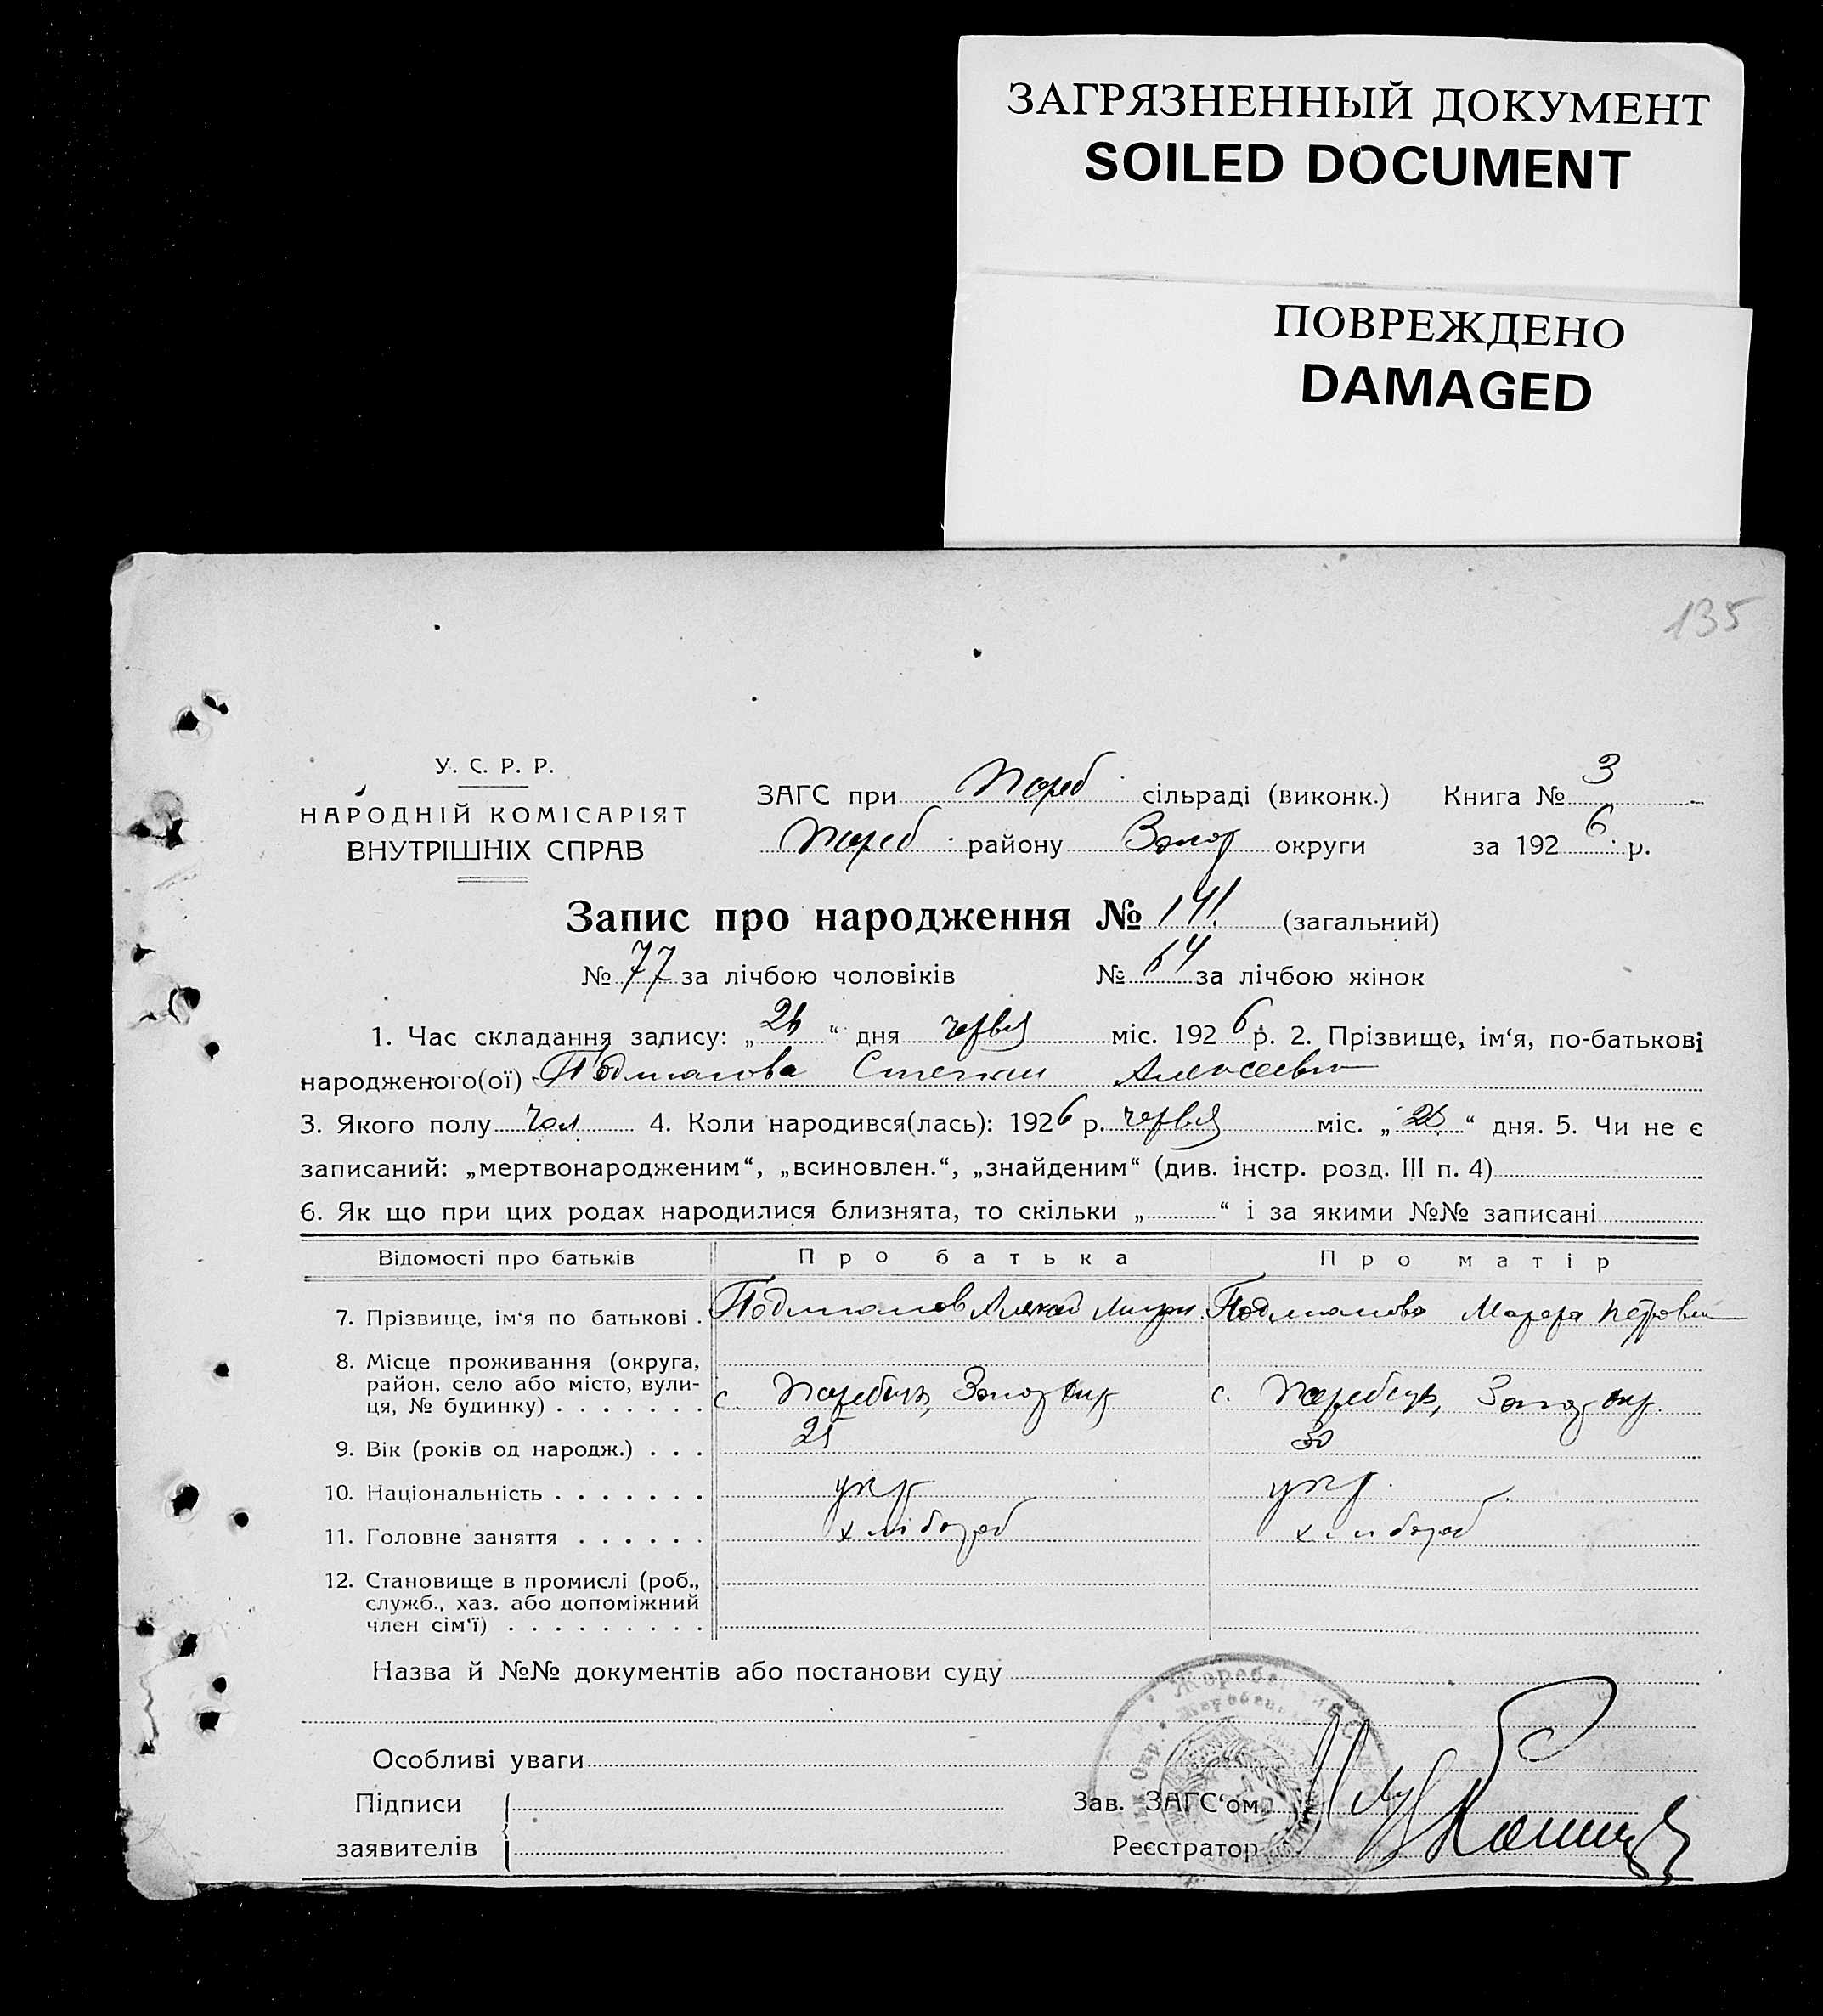 ЗАГРЯЗНЕННЫЙ ДОКУМЕНТ
SOILED DOCUMENT
ПОВРЕЖДЕНО
DAMAGED
135
У. С. Р. Р.
НАРОДНІЙ КОМІСАРІЯТ
ВНУТРІШНІХ СПРАВ
ЗАГС при Жереб. сільраді (виконк.) Книга № 3
Жереб. району Запор округи за 1926 р.
Запис про народження № 141 (загальний)
№ 77 за лічбою чоловіків № 64 за лічбою жінок
1. Час складання запису: „26“ дня червня міс. 1926 р. 2. Прізвище, ім‘я, по-батькові
народженого(ої) Степан Алексеевич
3. Якого полу чол 4. Коли народився(лась): 1926 р. червня міс. „26“ дня. 5. Чи не є
записаний: „мертвонародженим“, „всиновлен.“, „знайденим“ (див. інстр. розд. III п. 4)
6. Як що при цих родах народилися близнята, то скільки „ “ і за якими №№ записані
Відомості про батьків Про батька Про матір
7. Прізвище, ім‘я по батькові . Алексей Петровна
8. Місце проживання (округа,
район, село або місто, вули-
ця, № будинку) . . . . . . . с. Жеребець, Запор окр с. Жеребець, Запор окр.
9. Вік (років од народж.) . . . 25 30
10. Національність . . . . . . . укр укр.
11. Головне заняття . . . . . . хлібороб хлібороб
12. Становище в промислі (роб.,
служб., хаз. або допоміжний
член сім‘ї) . . . . . . . . .
Назва й №№ документів або постанови суду
Особливі уваги
Підписи
заявителів
Зав. ЗАГС‘ом
Реєстратор